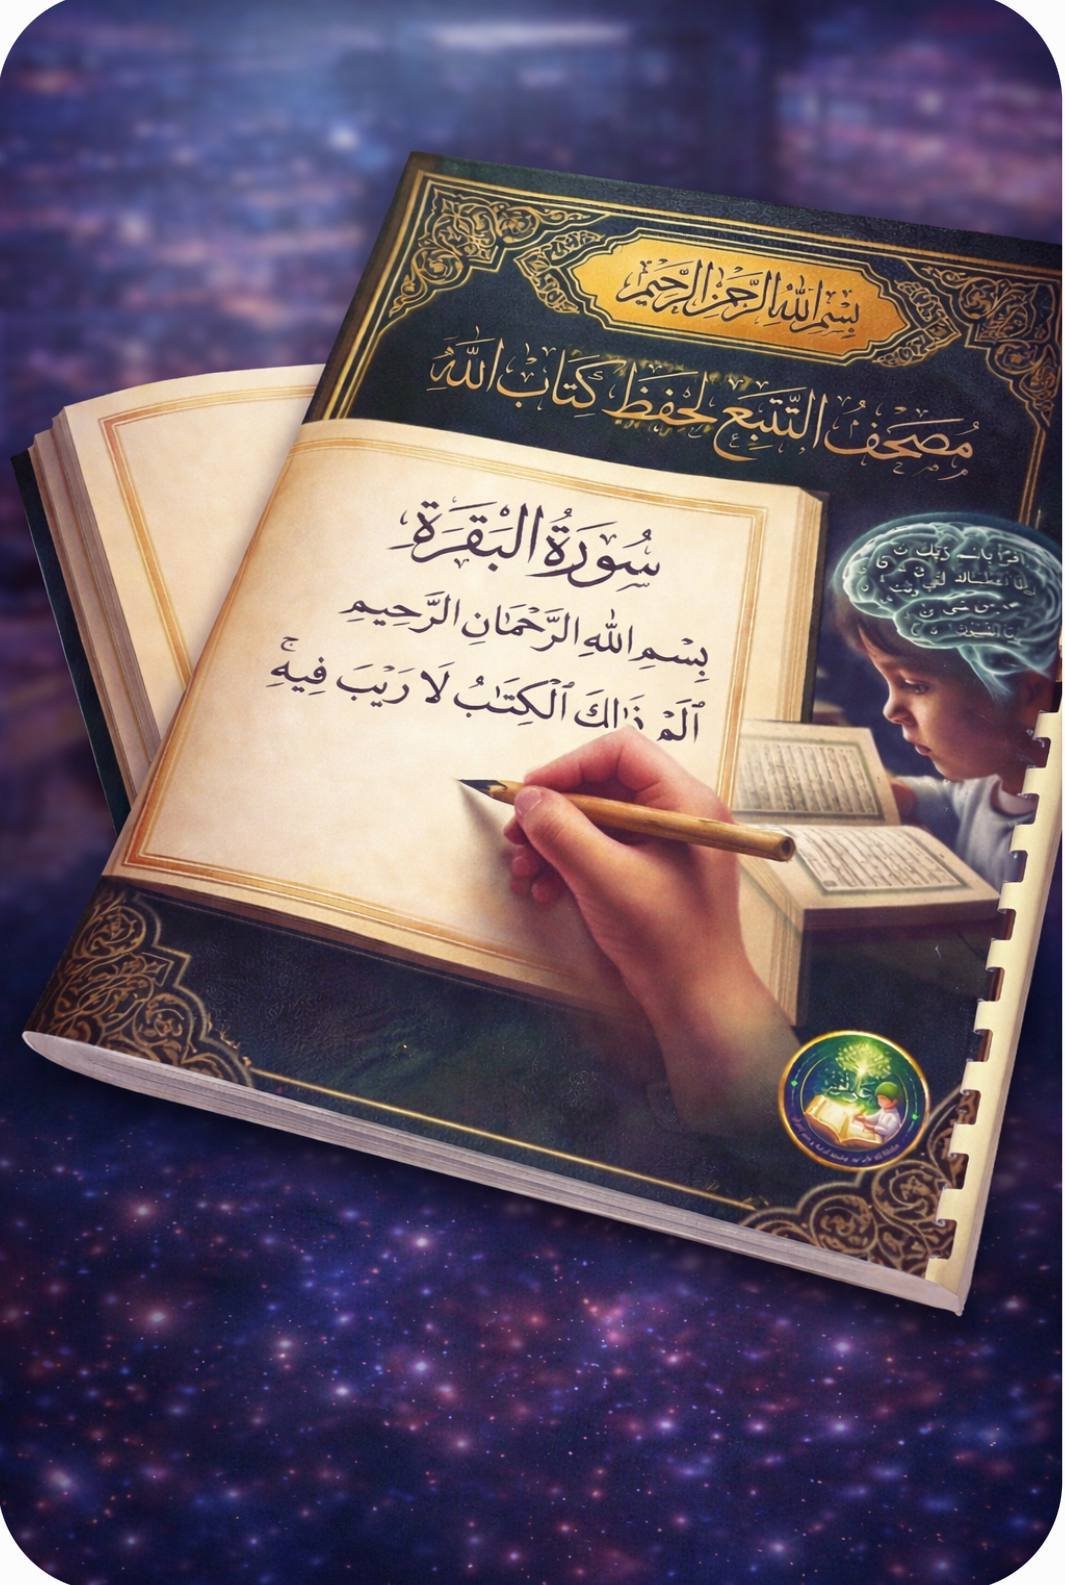 بِسْمِ اللهِ الرَّحْمٰنِ الرَّحِيْمِ
مُصحَفُ التَّتَبُّع لِحفظِ كِتَابِ اللَّهِ
سُورَةُ البَقَرَةِ
بِسْمِ اللهِ الرَّحْمَانِ الرَّحِيمِ
آلَمٓ ذَٰالِكَ ٱلْكِتَٰبُ لَا رَيْبَ فِيهِ ۚ